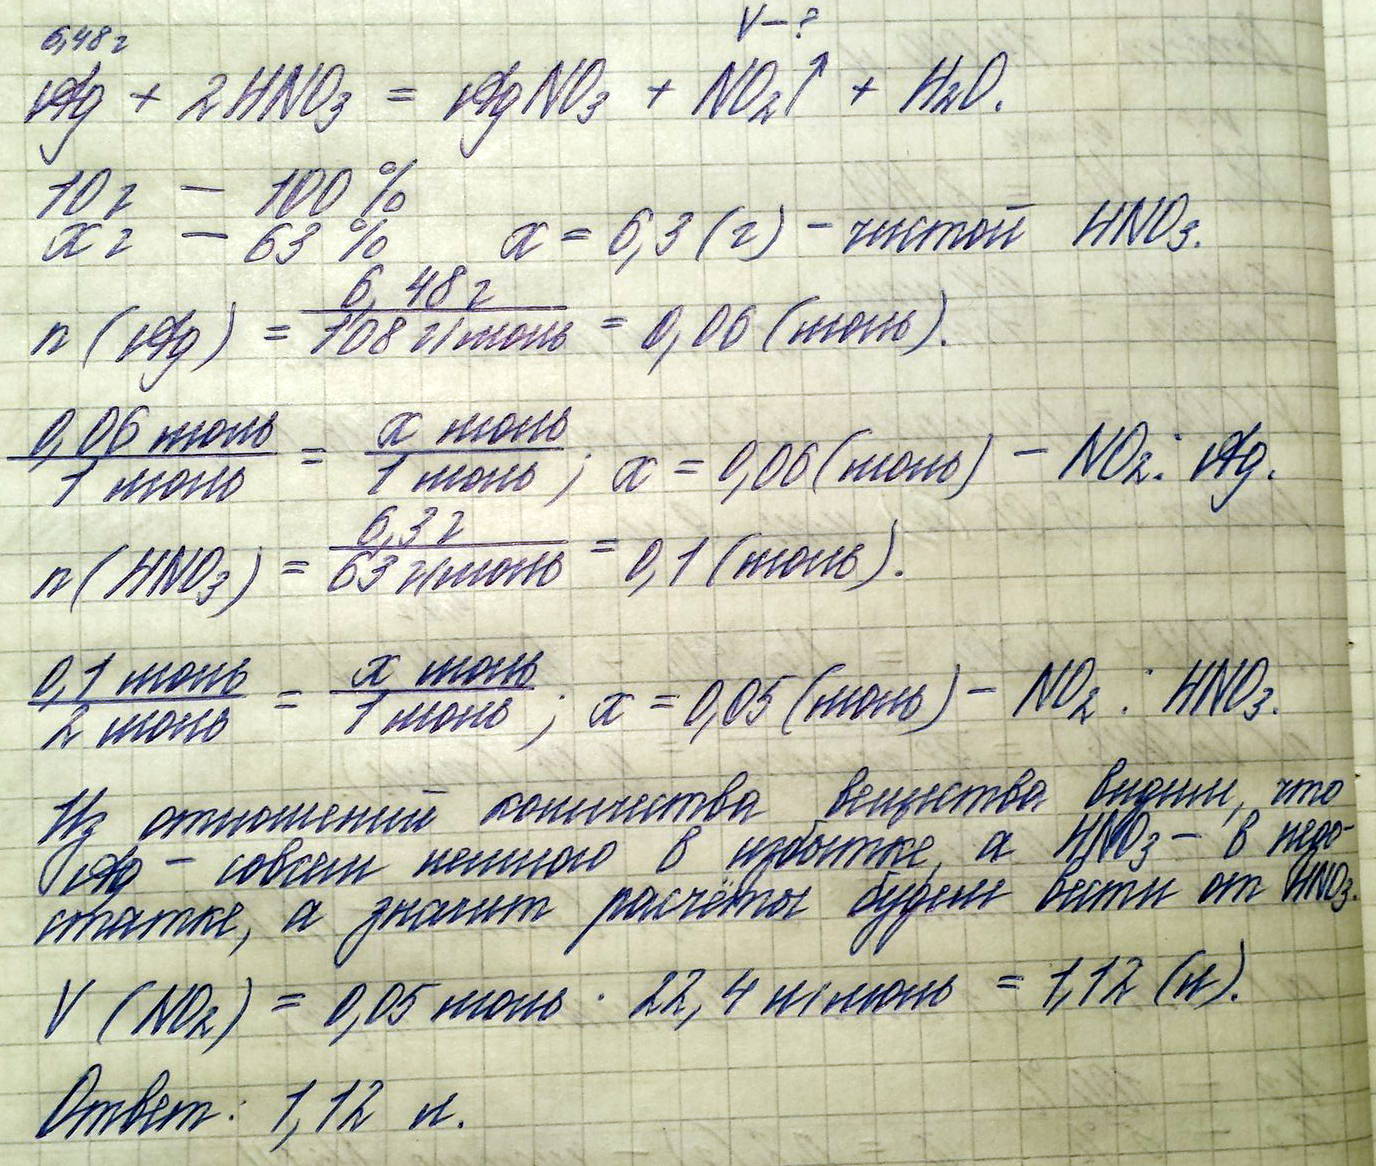 6,48 г
V – ?
Ag + 2HNO₃ = AgNO₃ + NO₂↑ + H₂O.
10 г — 100 %
х г — 63 % х = 6,3 (г) – чистой HNO₃.
n (Ag) = 6,48 г / 108 г/моль = 0,06 (моль).
0,06 моль / 1 моль = х моль / 1 моль ; х = 0,06 (моль) – NO₂ : Ag.
n (HNO₃) = 6,3 г / 63 г/моль = 0,1 (моль).
0,1 моль / 2 моль = х моль / 1 моль ; х = 0,05 (моль) – NO₂ : HNO₃.
Из отношений количества вещества видим, что
Ag – совсем немного в избытке, а HNO₃ – в недо-
статке, а значит расчёты будем вести от HNO₃.
V (NO₂) = 0,05 моль · 22,4 л/моль = 1,12 (л).
Ответ: 1,12 л.